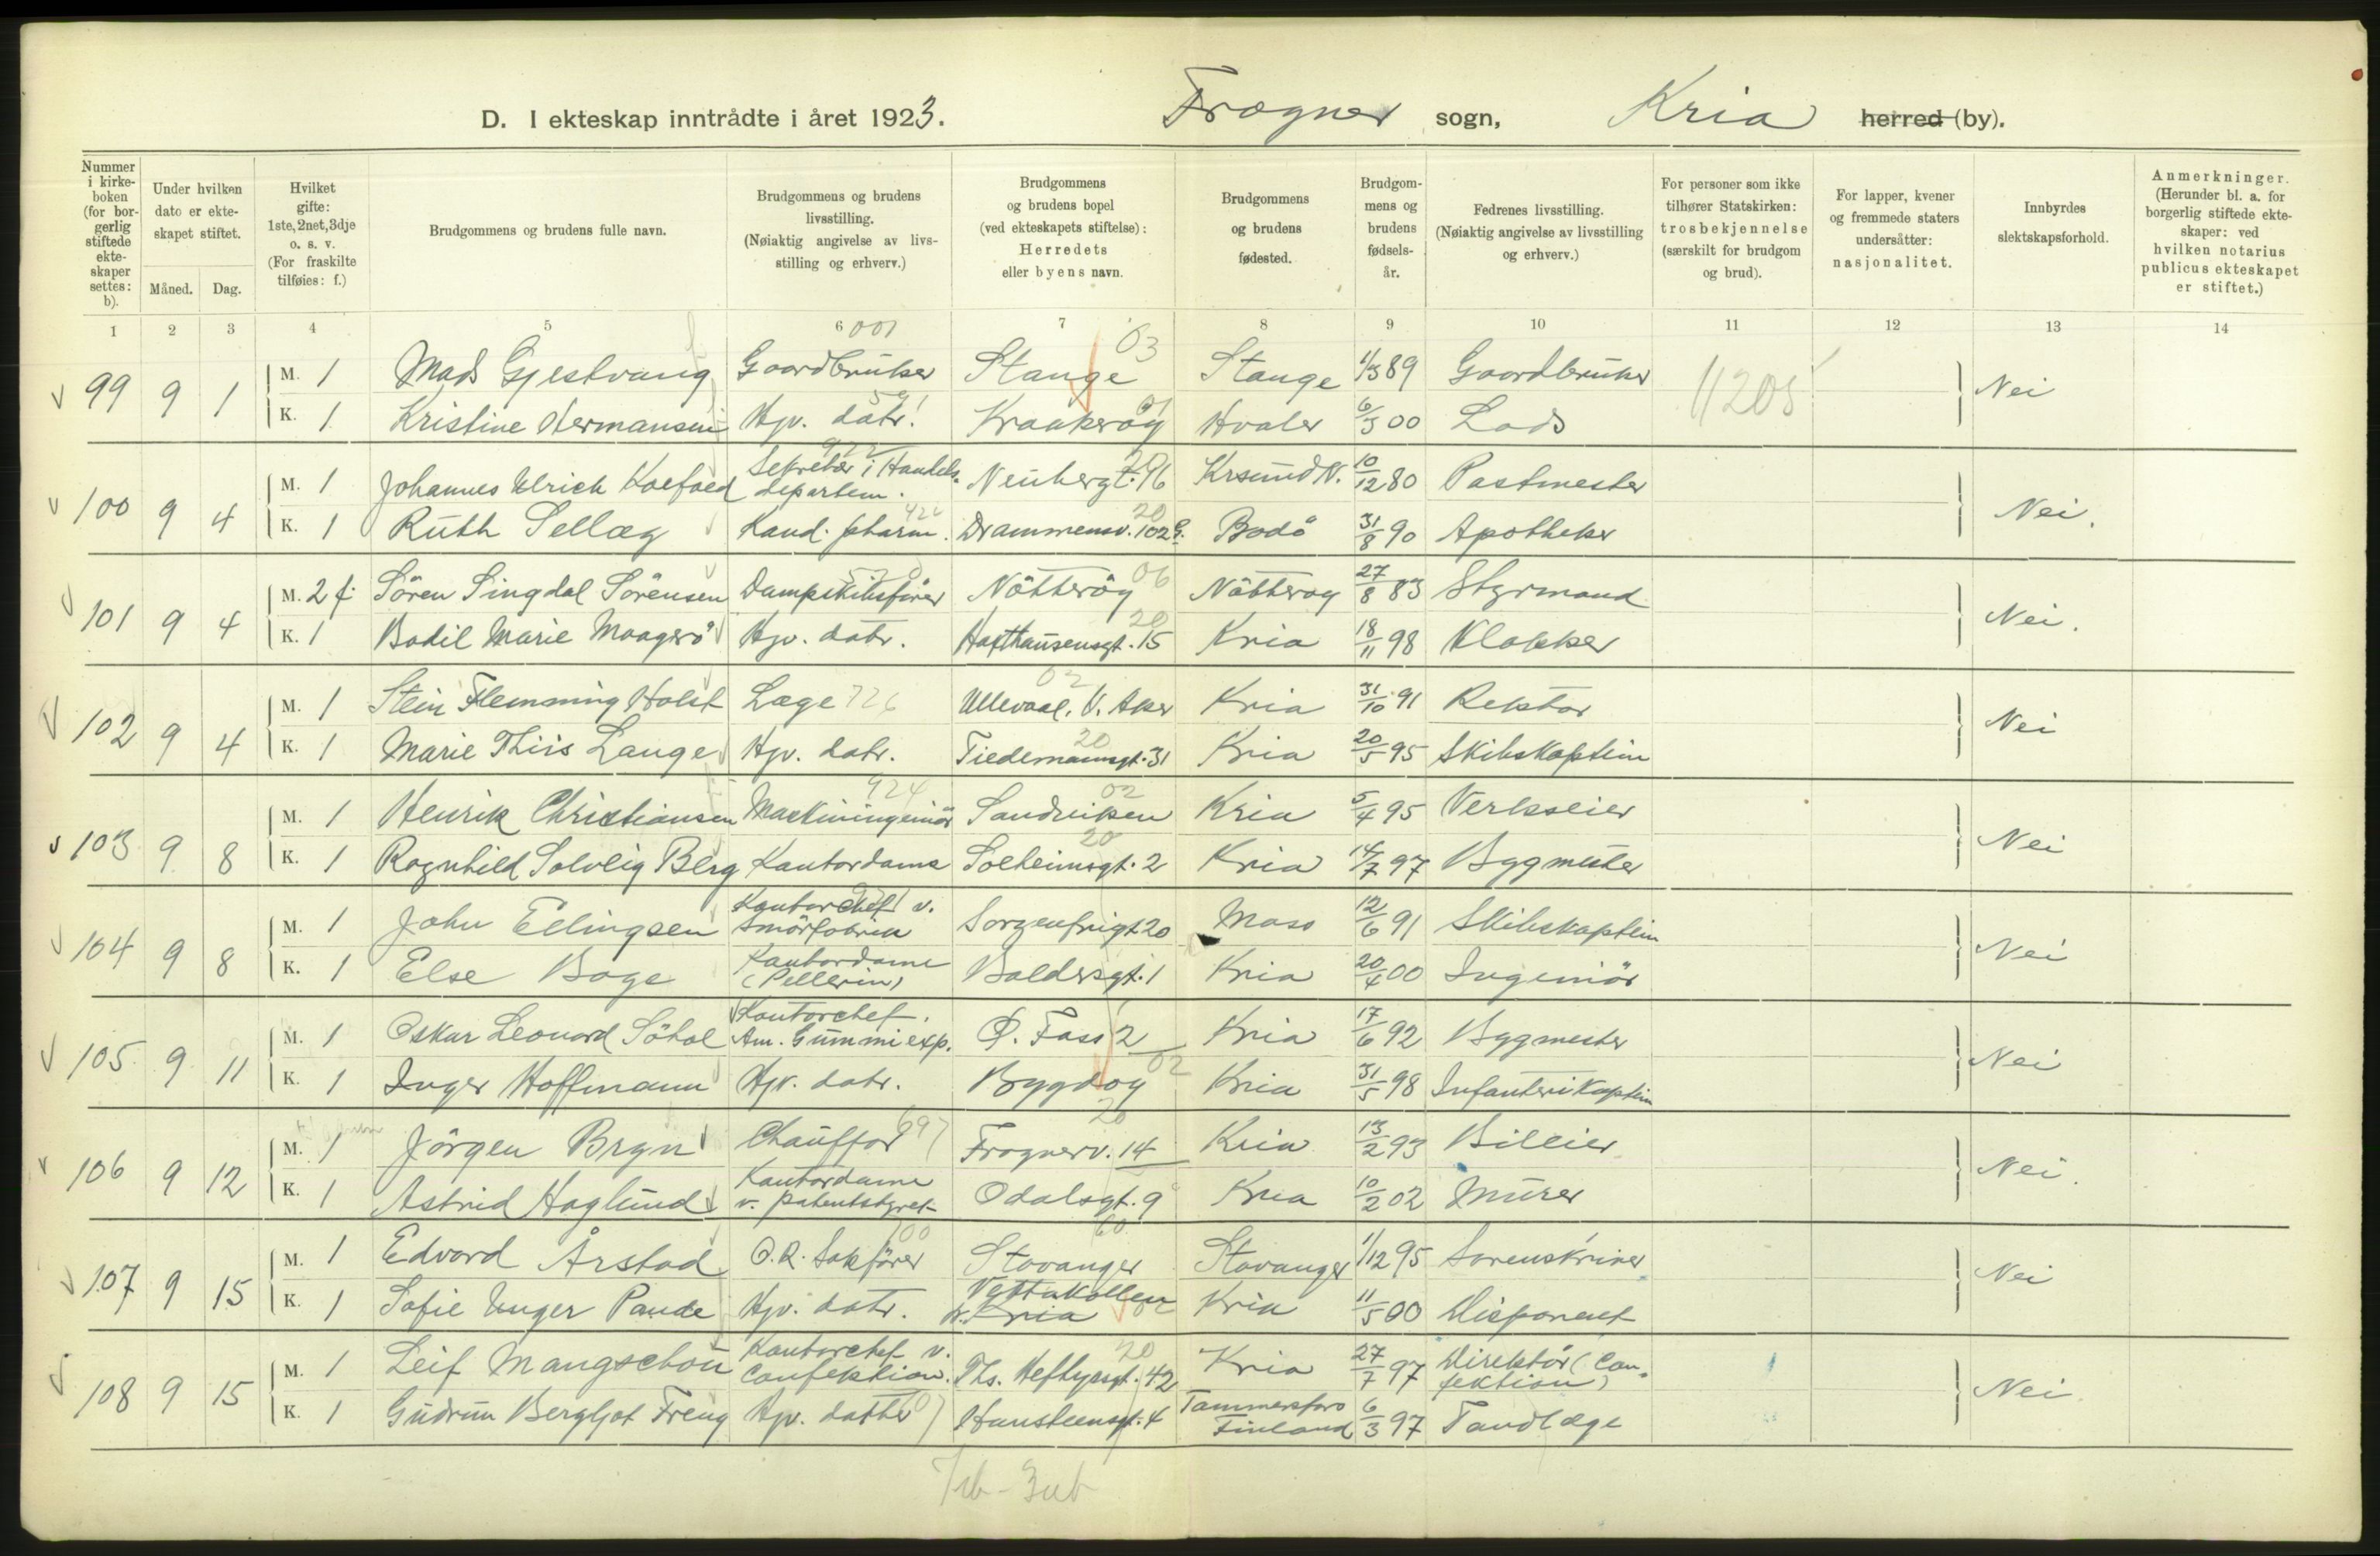 D. I ekteskap inntrådte i året 1923. Frogner sogn, Kria herred (by).
Nummer i kirkeboken (for borgerlig stiftede ekteskaper settes: b).
Under hvilken dato er ekteskapet stiftet.
Måned. Dag.
Hvilket gifte: 1ste, 2net, 3dje o. s. v. (For fraskilte tilføies: f.)
Brudgommens og brudens fulle navn.
Brudgommens og brudens livsstilling. (Nøiaktig angivelse av livsstilling og erhverv.)
Brudgommens og brudens bopel (ved ekteskapets stiftelse): Herredets eller byens navn.
Brudgommens og brudens fødested.
Brudgommens og brudens fødselsår.
Fedrenes livsstilling. (Nøiaktig angivelse av livsstilling og erhverv.)
For personer som ikke tilhører Statskirken: trosbekjennelse (særskilt for brudgom og brud).
For lapper, kvener og fremmede staters undersåtter: nasjonalitet.
Innbyrdes slektskapsforhold.
Anmerkninger. (Herunder bl. a. for borgerlig stiftede ekteskaper: ved hvilken notarius publicus ekteskapet er stiftet.)
1 2 3 4 5 6 7 8 9 10 11 12 13 14
99 9 1 M. 1 Mads Gjestvang Gaardbruker Stange Stange 1/3 89 Gaardbruker Nei
K. 1 Kristine Hermansen Hjv. datr. Kraakerøy Hvaler 6/3 00 Lods
100 9 4 M. 1 Johannes Ulrich Koefoed Sekretær i Handels departem. Neubergt. 16 Krsund N. 10/12 80 Postmester Nei.
K. 1 Ruth Sellæg Kand. pharm. Drammensv. 102 Bodö 31/8 90 Apotheker
101 9 4 M. 2 f. Sören Singdal Sörensen Dampskibsfører Nötteröy Nötteröy 27/8 83 Styrmand Nei.
K. 1 Bodil Marie Maagerö Hjv. datr. Hafthausensgt. 15 Kria 18/11 98 Klokker
102 9 4 M. 1 Stein Flemming Holst Læge 726 Ullevaal, V. Aker Kria 31/10 91 Rektor Nei
K. 1 Marie Thiis Lange Hjv. datr. Tiedemannsgt. 31 Kria 20/5 95 Skibskaptein
103 9 8 M. 1 Henrik Christiansen Maskiningeniör Sandviken Kria 5/4 95 Verkseier Nei
K. 1 Ragnhild Solveig Berg Kontordame Solheimsgt. 2 Kria 14/7 97 Byggmester
104 9 8 M. 1 John Ellingsen Kontorchef v. Smörfabrik Sorgenfrigt 20 Moss 12/6 91 Skibskaptein Nei
K. 1 Else Boge Kontordame (Pellerin) Baldersgt. 1 Kria 20/4 00 Ingeniör
105 9 11 M. 1 Oskar Leonard Söhol Kontorchef. Am. Gummi exp. Kria 17/6 92 Byggmester Nei
K. 1 Inger Hoffmann Hjv. datr. Bygdøy Kria 31/5 98 Infanterikaptein
106 9 12 M. 1 Jörgen Bryn Chauffør 697 Frognerv. 14 Kria 13/2 93 Bileier Nei.
K. 1 Astrid Haglund Kontordame v. patentstyret Odalsgt. 9 Kria 10/2 02 Murer
107 9 15 M. 1 Edvard Årstad O.R. Sakfører Stavanger Stavanger 1/12 95 Sorenskriver Nei
K. 1 Sofie Unger Pande Hjv. datr. Vettakollen Kria Kria 11/5 00 Disponent
108 9 15 M. 1 Leif Mangschou Kontorchef v. Confektion. Ths. Heftyesgt. 42 Kria 27/7 97 Direktör (Confektion) Nei
K. 1 Gudrun Bergljot Freng Hjv. datter Hansteensgt. 4 Tammersfors Finland 6/3 97 Tandlæge
11205